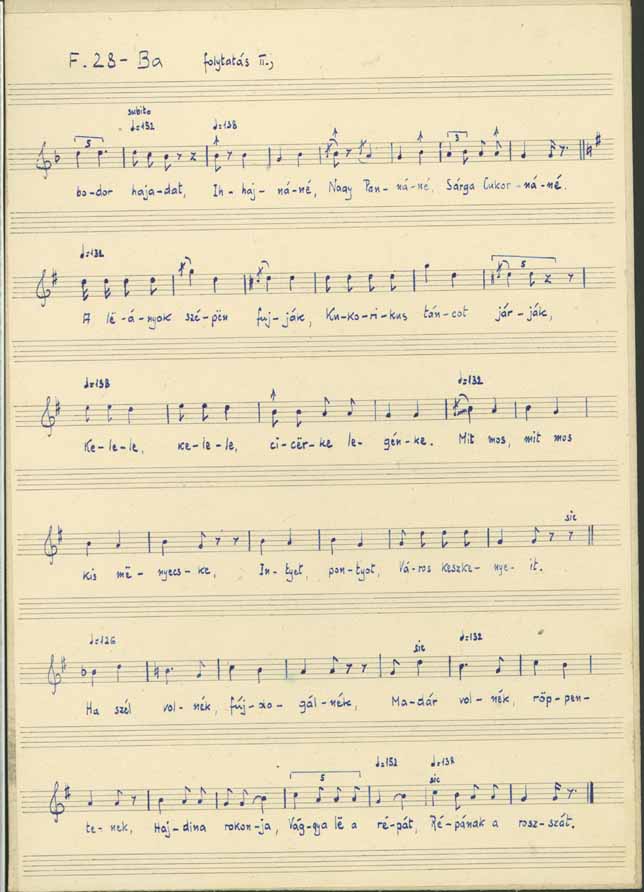 F. 28 - Ba folytatás II.,
subito
♩=152 ♩=138
5 3
bo-dor haja-dat, Ih-haj-ná-né, Nagy Pan-ná-né. Sárga Cukor-ná-né.
♩=132
5
A lë-á-nyok szé-pën fuj-ják, Ku-ko-ri-kus tán-cot jár-ják,
♩=138 ♩=132
Ke-le-le, ke-le-le, ci-cër-ke le-gén-ke. Mit mos, mit mos
sic
kis më-nyecs-ke, In-gyet, pon-tyot, Vá-ros keszke-nye-it.
♩=126 sic ♩=132
Ha szél vol-nék, fúj-do-gál-nék, Ma-dár vol-nék, röp-pen-
♩=152 ♩=138
5 sic
te-nek, Haj-dina rokon-ja, Vág-gya lë a ré-pát, Ré-pának a rosz-szát.